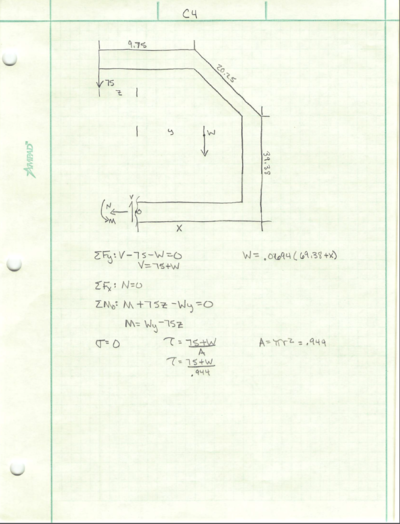 C4
9.75
20.25
75
z
y
W
39.38
V
N
O
M
X
ΣFy: V-75-W=0
W= .06694(69.38+x)
V=75+W
ΣFx: N=0
ΣMo: M+75z-Wy=0
M= Wy-75z
σ=0
τ= 75+W / A
A=πr²=.944
τ= 75+W / .944